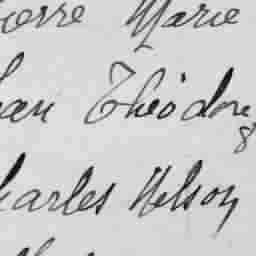 ierre Marie
ean Théodore
harles Nelson